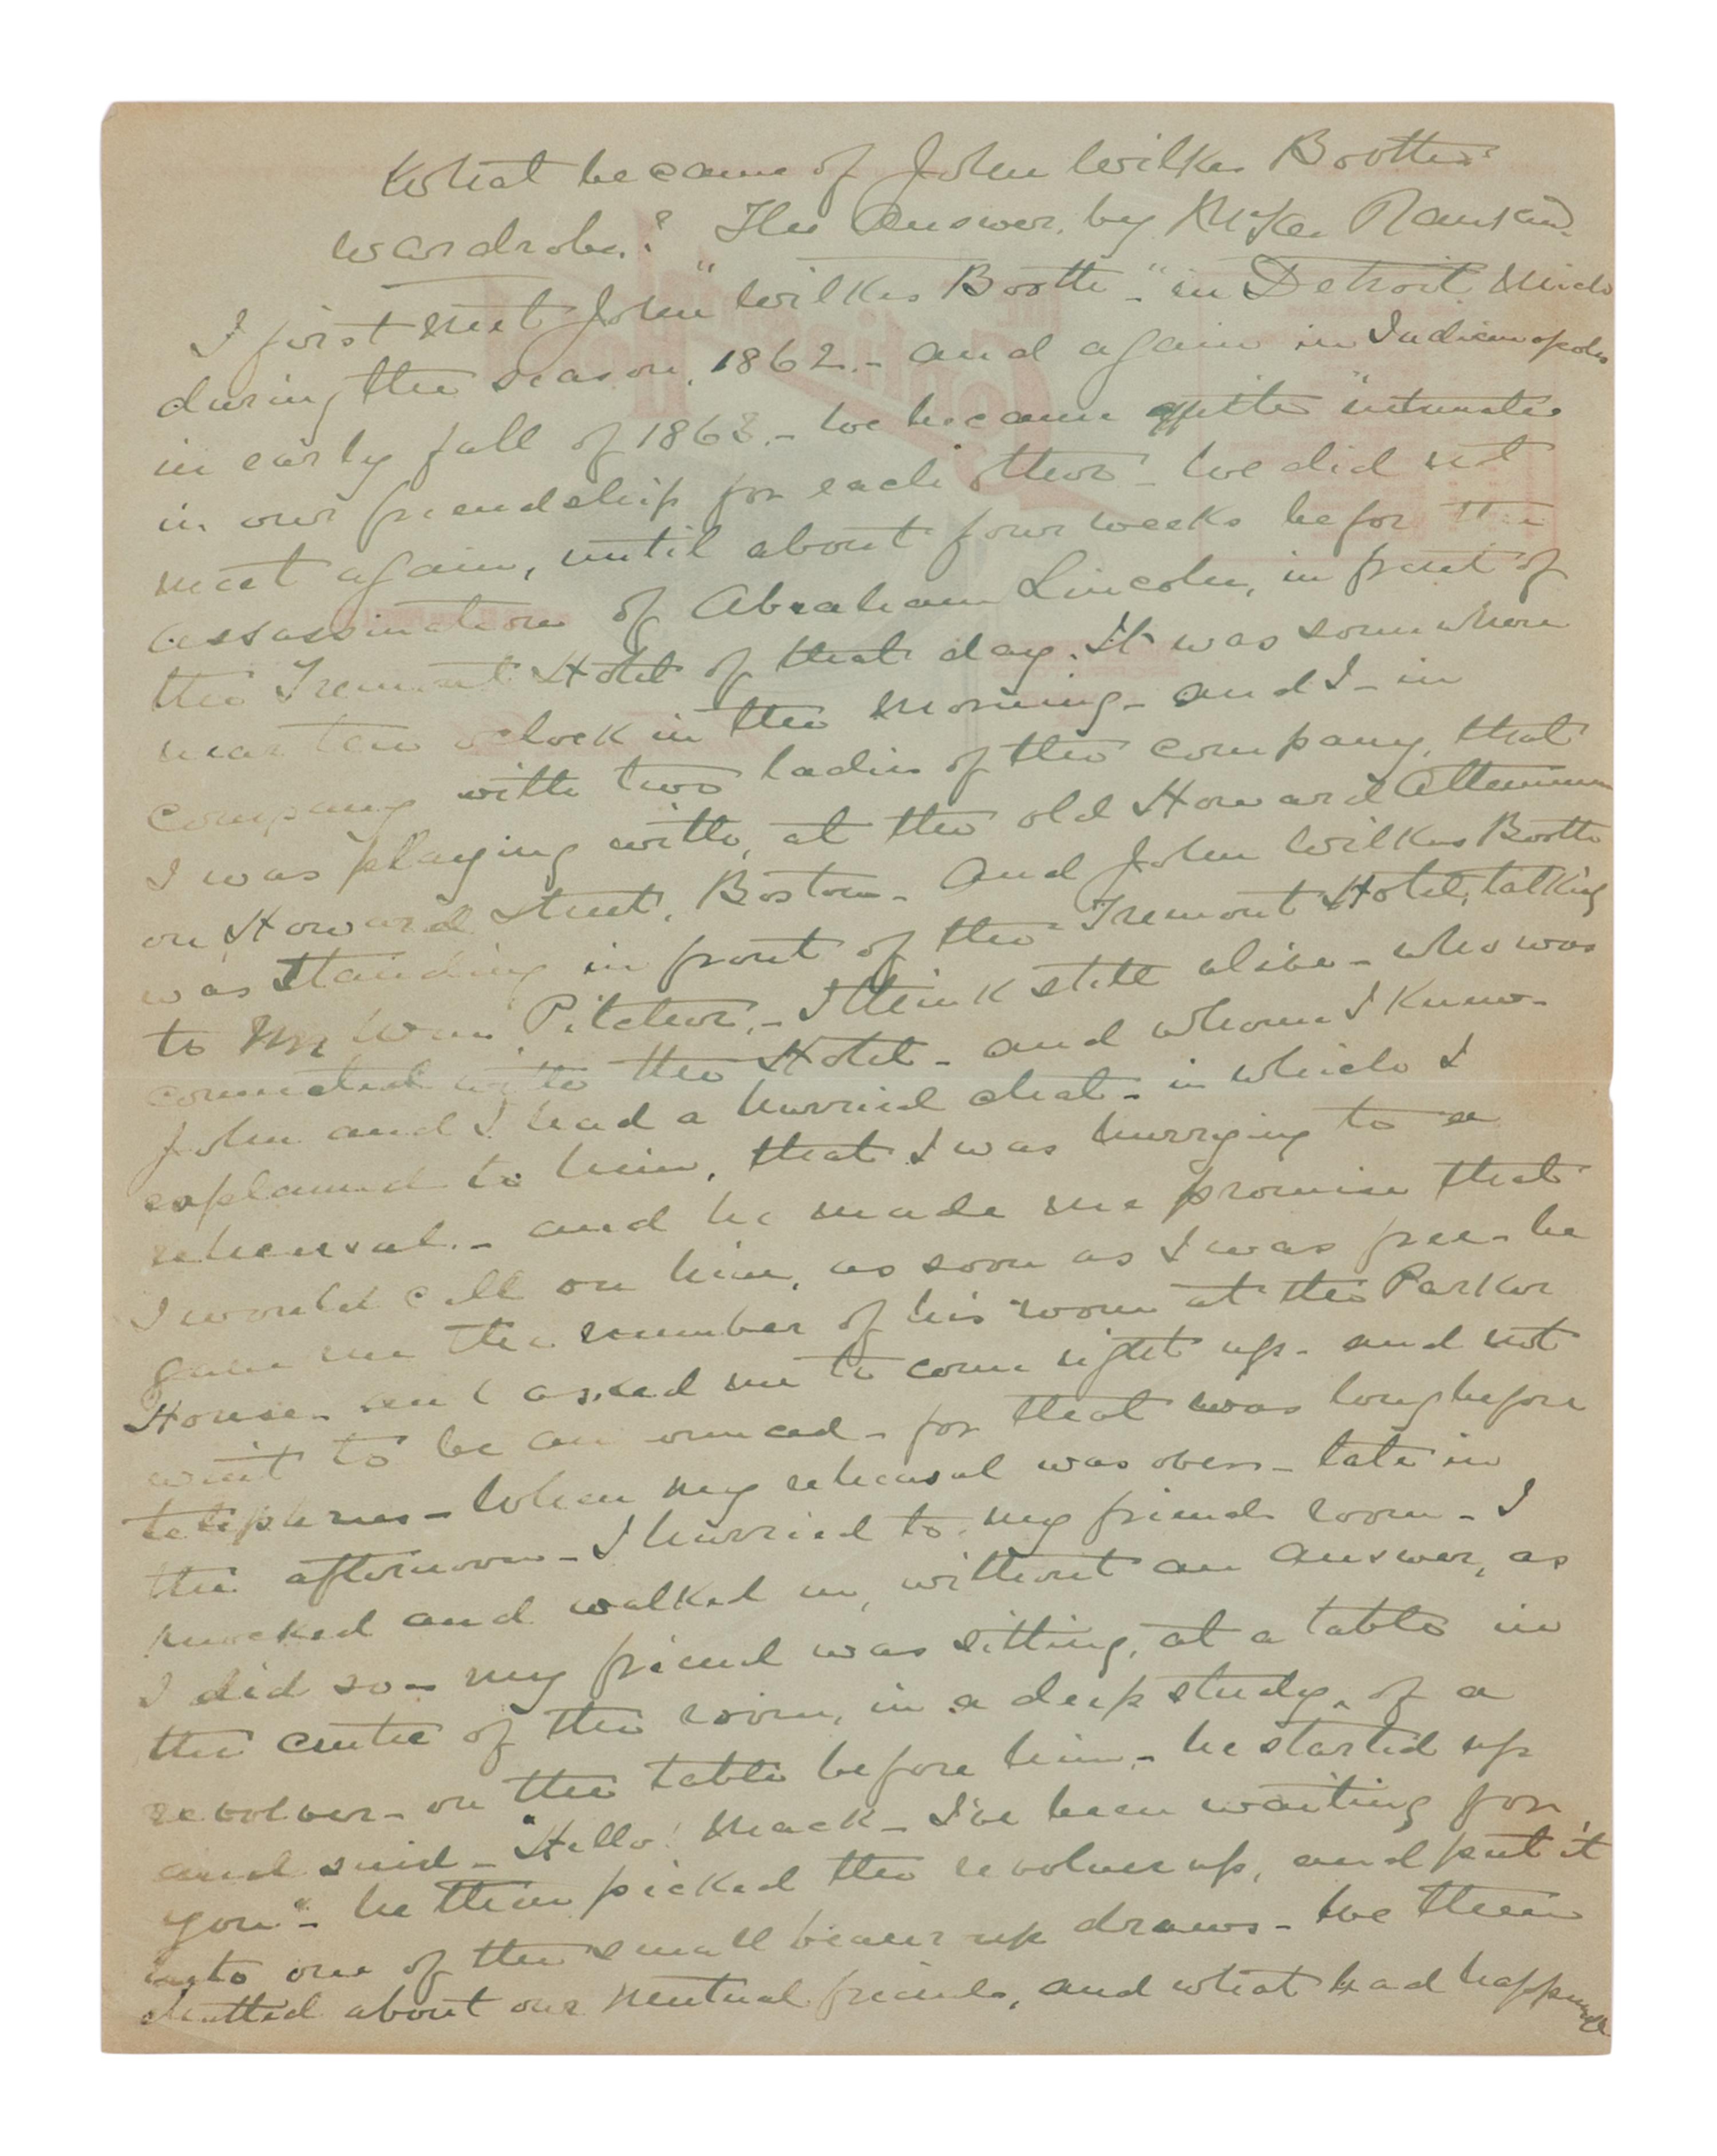 What became of John Wilkes Booth's
wardrobe? The Answer, by McKee Rankin.
I first met John "Wilkes Booth" in Detroit Mich
during the season, 1862.- and again in Indianapolis
in early fall of 1863.- we became quite intimate
in our friendship for each other - we did not
meet again, until about four weeks befor the
assassination of Abraham Lincoln, in front of
the Tremont Hotel of that day. It was somewhere
near ten oclock in the morning - and I - in
company with two ladies of the company, that
I was playing with, at the old Howard Atheneum
on Howard Street, Boston - And John Wilkes Booth
was standing in front of the Tremont Hotel, talking
to Mr Wm Pitcher, - I think still alive - who was
connected with the Hotel - and whom I knew -
John and I had a hurried chat - in which I
explained to him, that I was hurrying to a
rehearsal. - and he made me promise that
I would call on him, as soon as I was free - he
gave me the number of his room at the Parker
House - and asked me to come right up - and not
wait to be announced - for that was long before
telephones - When my rehearsal was over - late in
the afternoon - I hurried to my friends room - I
knocked and walked in, without an answer, as
I did so - my friend was sitting, at a table in
the centre of the room, in a deep study, of a
revolver - on the table before him - he started up
and said - "Hello! Mack - I've been waiting for
you" - he then picked the revolver up, and put it
into one of the small beaureup draws - We then
chatted about our mutual friends, and what had happened